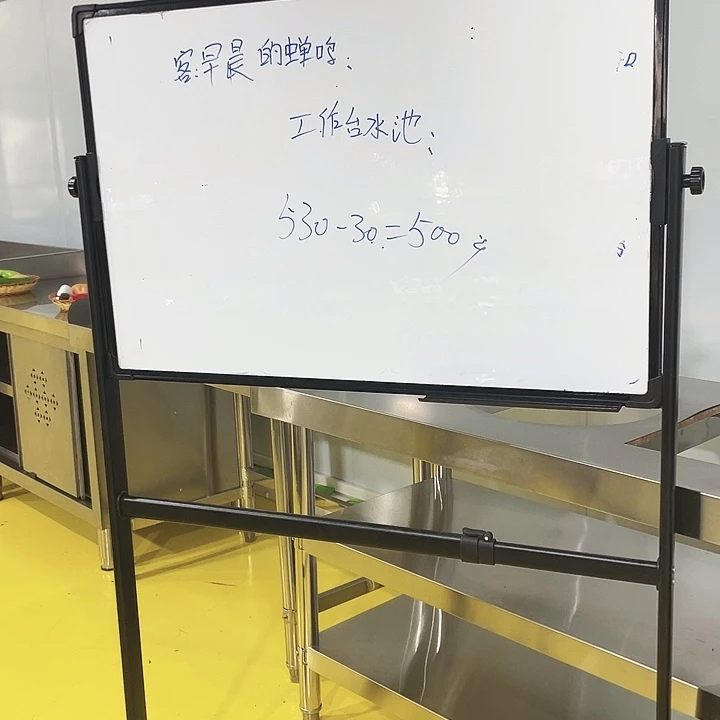 客:早晨的蝉鸣:
工作台水池:
530-30=500